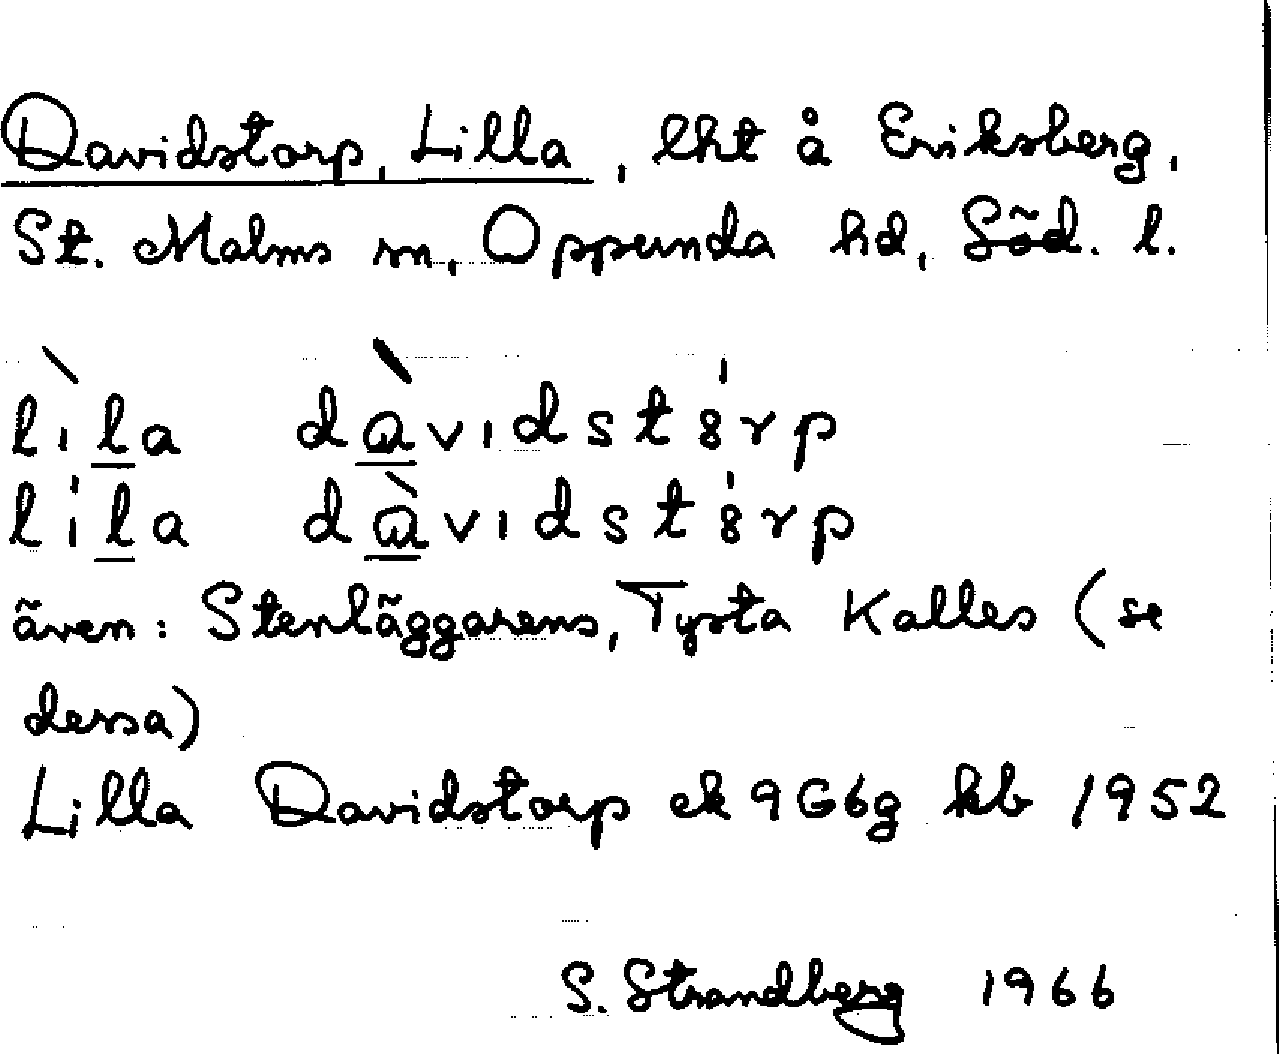 Davidstorp, Lilla, lht å Eriksberg,
St. Malms sn, Oppunda hd, Söd. l.
lìla dàvıdst8́rp
líla dàvıdst8́rp
även: Stenläggarens, Tysta Kalles (se
dessa)
Lilla Davidstorp ek 9G6g kb 1952
S. Strandberg 1966